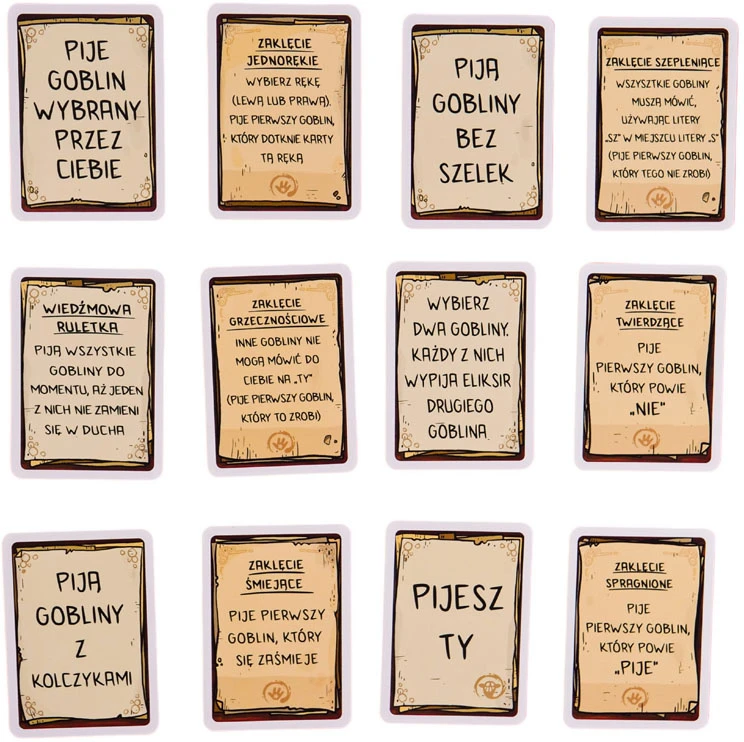 PIJE
GOBLIN
WYBRANY
PRZEZ
CIEBIE
ZAKLĘCIE
JEDNORĘKIE
WYBIERZ RĘKĘ
(LEWĄ LUB PRAWĄ).
PIJE PIERWSZY GOBLIN,
KTÓRY DOTKNIE KARTY
TĄ RĘKĄ
PIJĄ
GOBLINY
BEZ
SZELEK
ZAKLĘCIE SZEPLENIĄCE
WSZYSZTKIE GOBLINY
MUSZĄ MÓWIĆ,
UŻYWAJĄC LITERY
„SZ" W MIEJSZCU LITERY „S"
(PIJE PIERWSZY GOBLIN,
KTÓRY TEGO NIE ZROBI)
WIEDŹMOWA
RULETKA
PIJĄ WSZYSTKIE
GOBLINY DO
MOMENTU, AŻ JEDEN
Z NICH NIE ZAMIENI
SIĘ W DUCHA
ZAKLĘCIE
GRZECZNOŚCIOWE
INNE GOBLINY NIE
MOGĄ MÓWIĆ DO
CIEBIE NA „TY"
(PIJE PIERWSZY GOBLIN,
KTÓRY TO ZROBI)
WYBIERZ
DWA GOBLINY.
KAŻDY Z NICH
WYPIJA ELIKSIR
DRUGIEGO
GOBLINA
ZAKLĘCIE
TWIERDZĄCE
PIJE
PIERWSZY GOBLIN,
KTÓRY POWIE
„NIE"
PIJĄ
GOBLINY
Z
KOLCZYKAMI
ZAKLĘCIE
ŚMIEJĄCE
PIJE PIERWSZY
GOBLIN, KTÓRY
SIĘ ZAŚMIEJE
PIJESZ
TY
ZAKLĘCIE
SPRAGNIONE
PIJE
PIERWSZY GOBLIN,
KTÓRY POWIE
„PIJE"